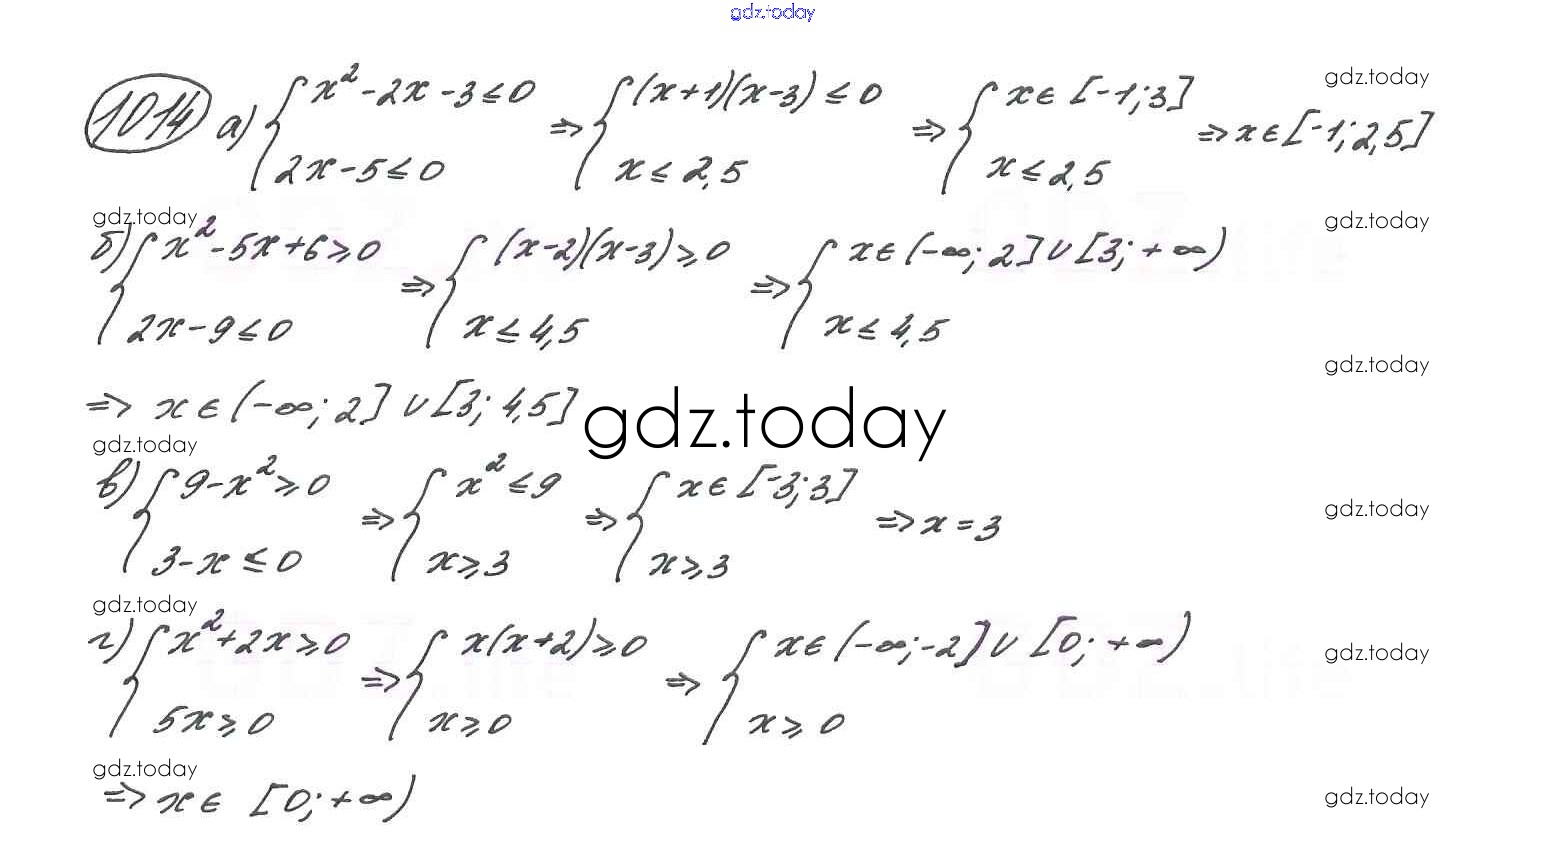 gdz.today
1014 а) { x² - 2x - 3 ≤ 0 ; 2x - 5 ≤ 0 ⇒ { (x+1)(x-3) ≤ 0 ; x ≤ 2,5 ⇒ { x ∈ [-1; 3] ; x ≤ 2,5 ⇒ x ∈ [-1; 2,5] gdz.today
gdz.today gdz.today
б) { x² - 5x + 6 ≥ 0 ; 2x - 9 ≤ 0 ⇒ { (x-2)(x-3) ≥ 0 ; x ≤ 4,5 ⇒ { x ∈ (-∞; 2] ∪ [3; +∞) ; x ≤ 4,5
gdz.today
⇒ x ∈ (-∞; 2] ∪ [3; 4,5] gdz.today
gdz.today
в) { 9 - x² ≥ 0 ; 3 - x ≤ 0 ⇒ { x² ≤ 9 ; x ≥ 3 ⇒ { x ∈ [-3; 3] ; x ≥ 3 ⇒ x = 3 gdz.today
gdz.today
г) { x² + 2x ≥ 0 ; 5x ≥ 0 ⇒ { x(x+2) ≥ 0 ; x ≥ 0 ⇒ { x ∈ (-∞; -2] ∪ [0; +∞) ; x ≥ 0 gdz.today
gdz.today
⇒ x ∈ [0; +∞) gdz.today